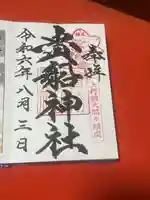 奉拝
貴船神社
令和六年八月三日